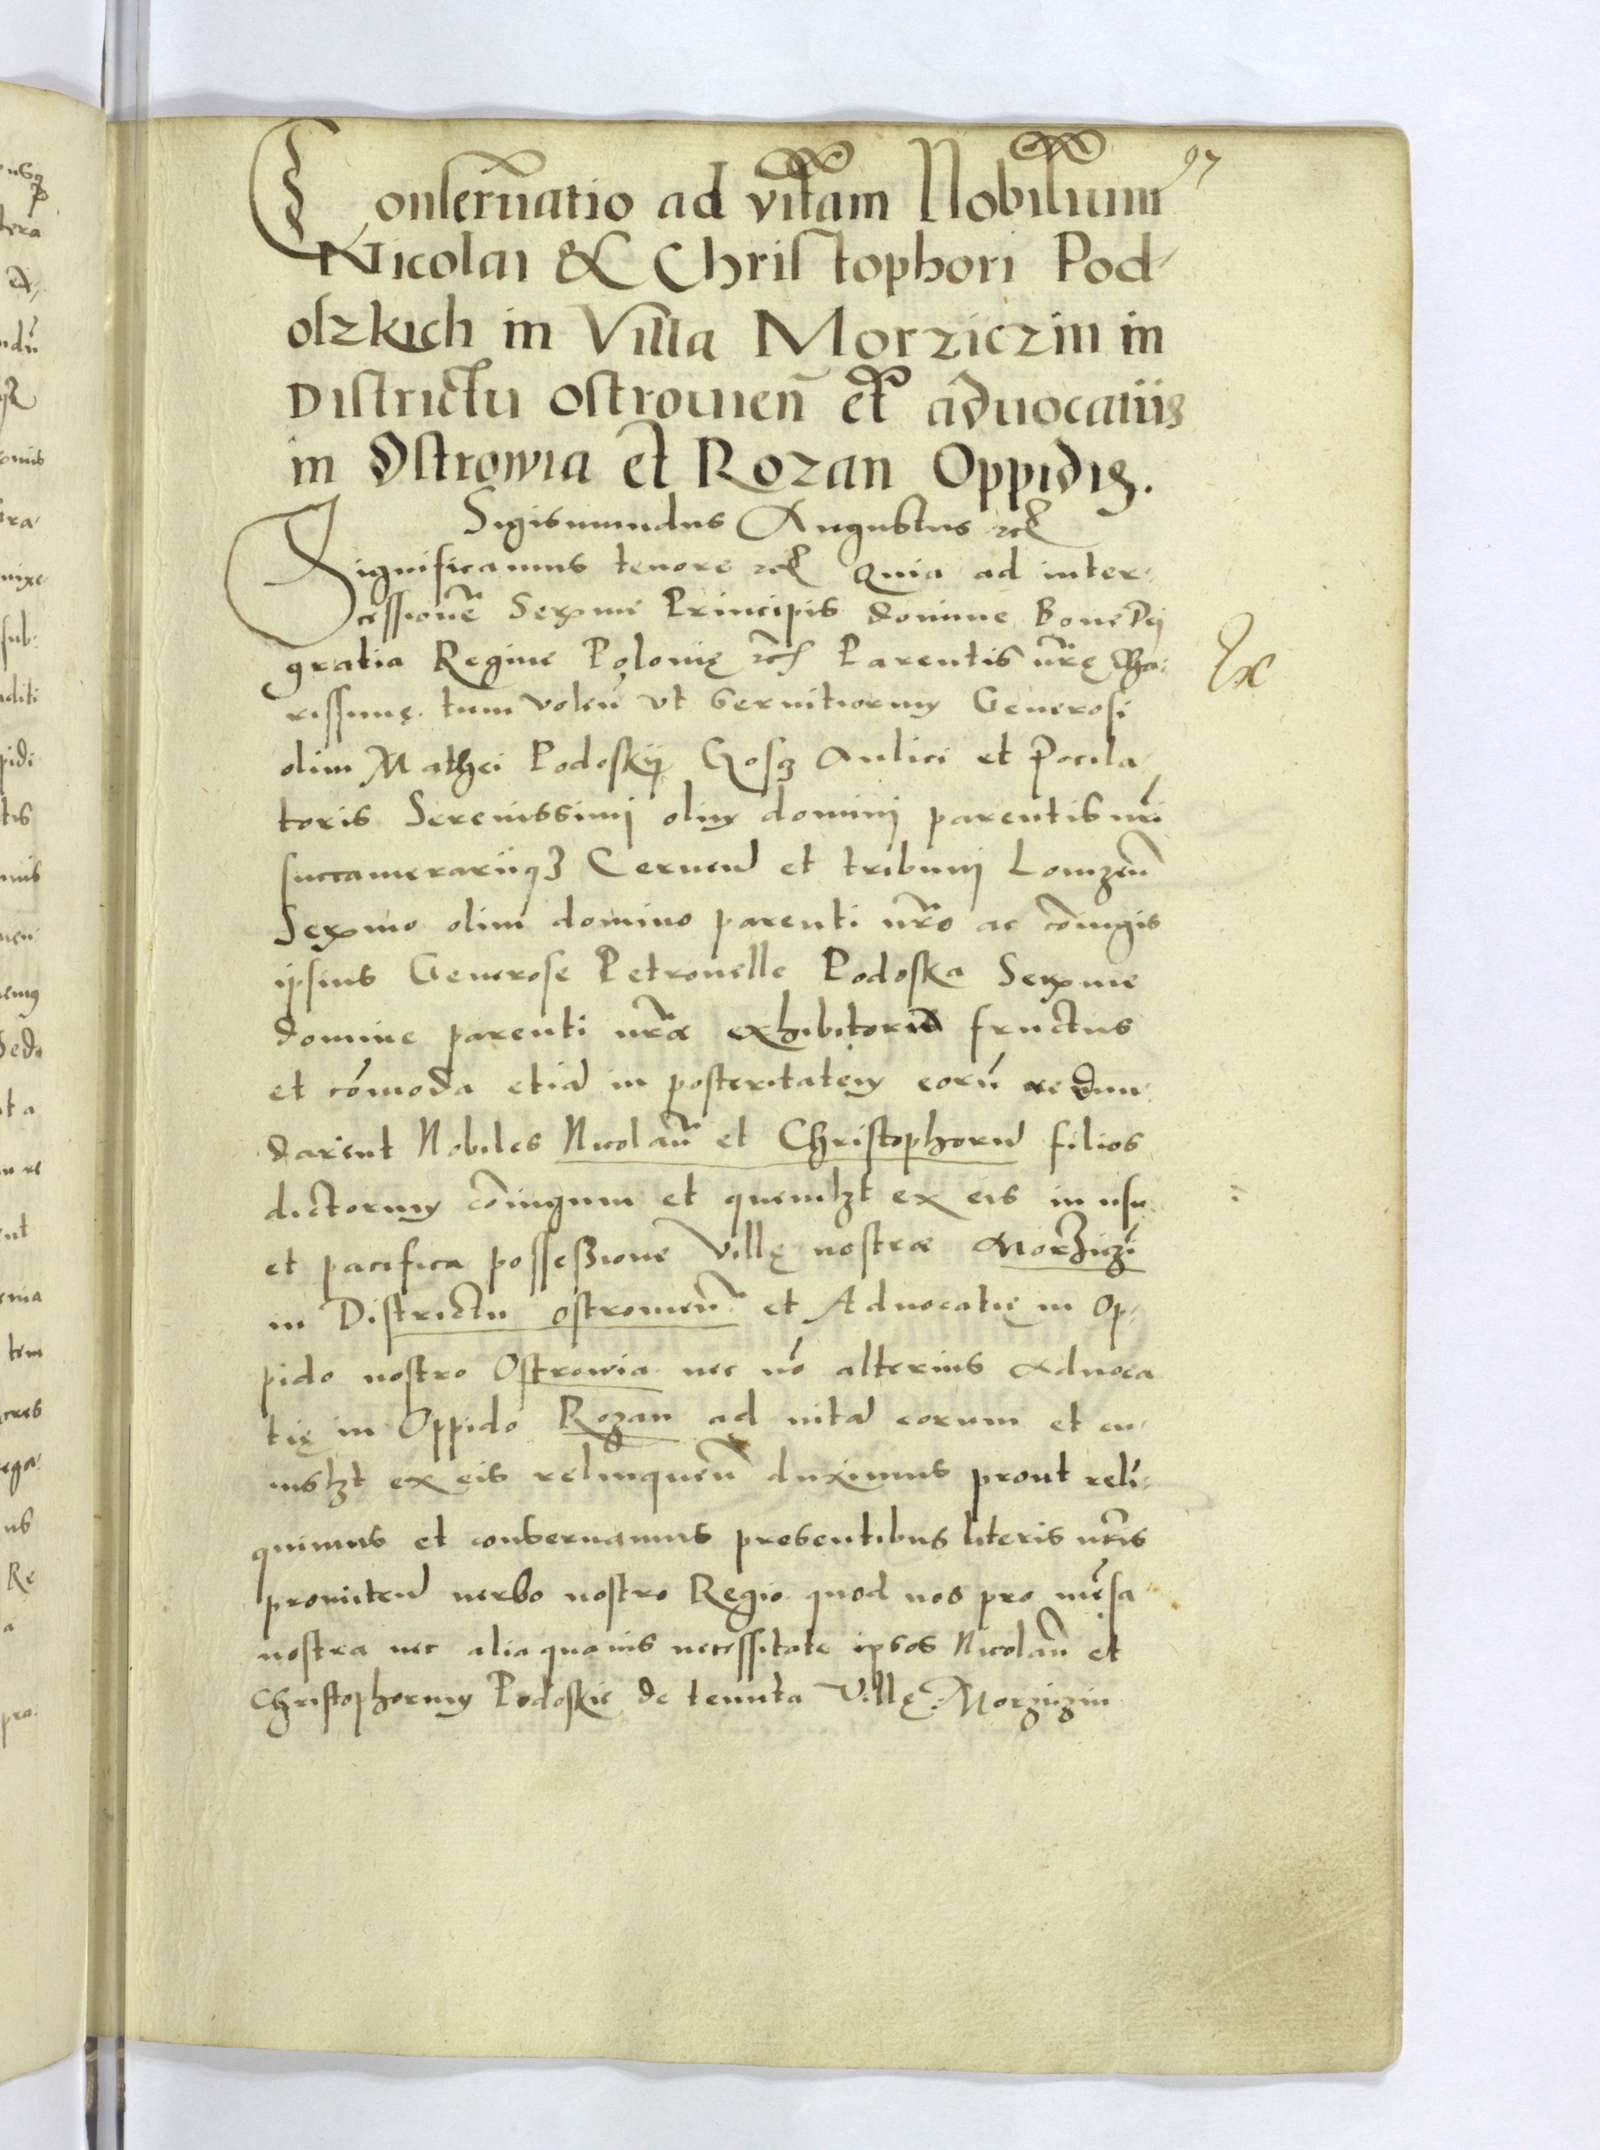 97
Conseruatio ad vitam Nobilium
Nicolai & Christophori Pod-
olzkich in Villa Morziczin in
Districtu Ostrouien̄ et aduocatiis
in Ostrowia et Rozan Oppidis.
Sigismundus Augustus etc̄
Significamus tenore etc̄ Quia ad inter-
cessionē Sermē Principis domine Bone Dei
gratia Regine Polonię etc̄ Parentis nr̄ę cha-
rissimę. tum volen̄ vt seruitiorum Generosi
olim Mathei Podoskij Gosz Aulici et Pocila-
toris Serenissimi olim domini parentis nr̄i
succamerariiq3 Cernen̄ et tribuni Lomzen̄
Sermo olim domino parenti nr̄o ac cōiugis
ipsius Generose Petronelle Podoska Serme
domine parenti nr̄æ exhibitorū fructus
et cōmoda etiā in posteritatem eorū redun-
darent Nobiles Nicolaū et Christophorū filios
dictorum cōiugum et quemlzt ex eis in usu
et pacifica possessione Villę nostræ Morziczī
in Districtu ostrouien̄ et Aduocatię in Op-
pido nostro Ostrowia nec nō alterius aduoca
tię in Oppido Rozan ad uitā eorum et cu-
iuslzt ex eis relinquen̄ duximus prout reli-
quimus et conseruamus presentibus literis nr̄is
promitten̄ verbo nostro Regio quod nos pro mēsa
nostra nec alia quauis necessitate ipsos Nicolaū et
Christophorum Podoskie de tenuta Villę Morziczin